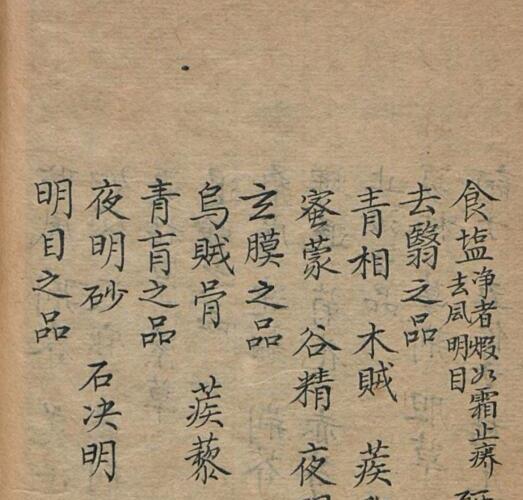 食塩 净者煅如霜止癢
去風明目
去翳之品
青相 木賊 蒺
蜜蒙 谷精 夜
去膜之品
烏賊骨 蒺藜
青盲之品
夜明砂 石决明
明目之品